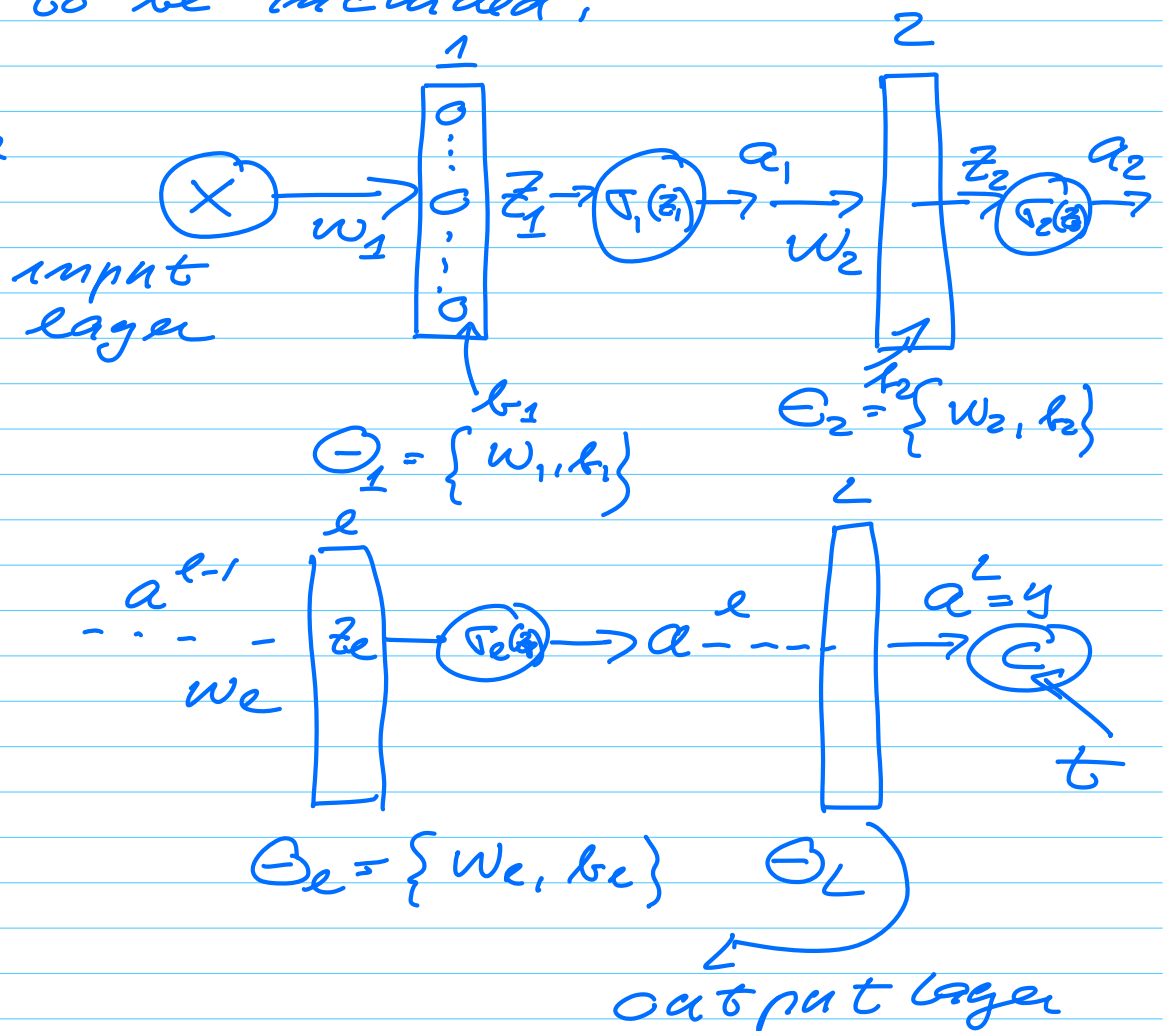 to be included,
1 2
X w₁ z₁ → σ₁(z₁) → a₁ → w₂ z₂ σ₂(z₂) a₂ →
input
layer
b₁ b₂
Θ₁ = {w₁, b₁} Θ₂ = {w₂, b₂}
l L
a^{l-1} w_l z_l σ_l(z_l) → a^l a^L = y C
t
Θ_l = {w_l, b_l} Θ_L
output layer